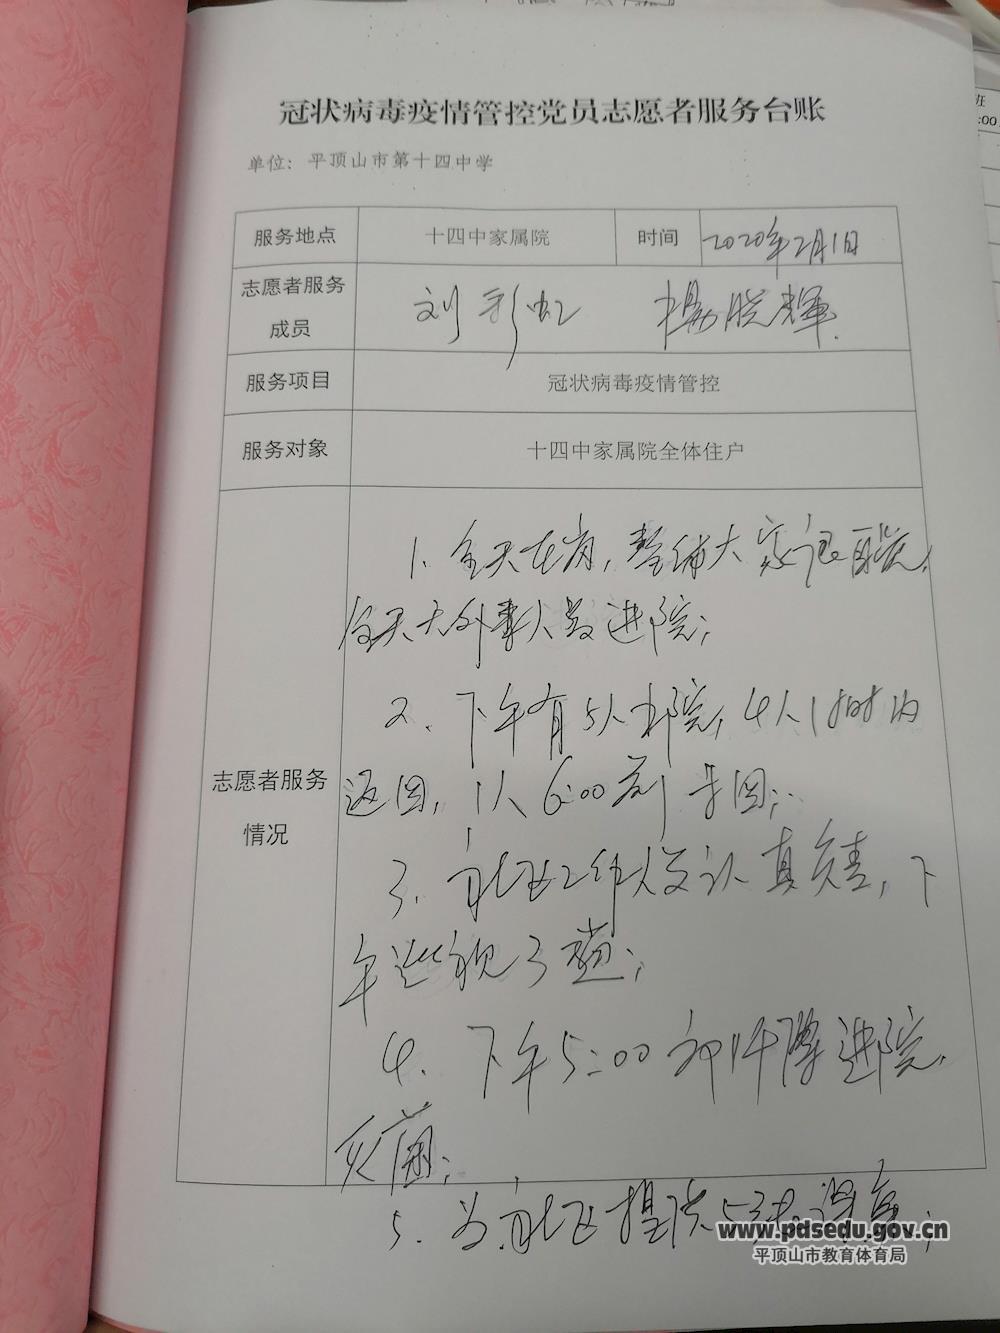 冠状病毒疫情管控党员志愿者服务台账
单位：平顶山市第十四中学
服务地点 十四中家属院 时间 2020年2月1日
志愿者服务 刘彩虹 杨晓辉
成员
服务项目 冠状病毒疫情管控
服务对象 十四中家属院全体住户
1. 全天在岗，整体大家很配合，
全天无外来人员进院；
2. 下午有5人出院，4人1小时内
返回，1人6:00前 回；
志愿者服务
情况
3. 社区工作人员认真负责，下
午巡视了 ；
4. 下午5:00 进院
灭菌；
5. 为社区提供
班
:00
www.pdsedu.gov.cn
平顶山市教育体育局